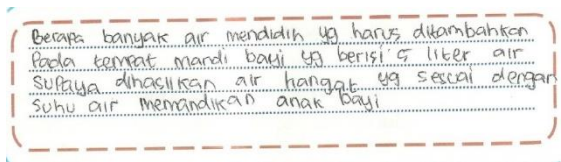 Berapa banyak air mendidih yg harus ditambahkan
Pada tempat mandi bayi yg berisi 5 liter air
Supaya dihasilkan air hangat yg sescai dengan
Suhu air memandikan anak bayi